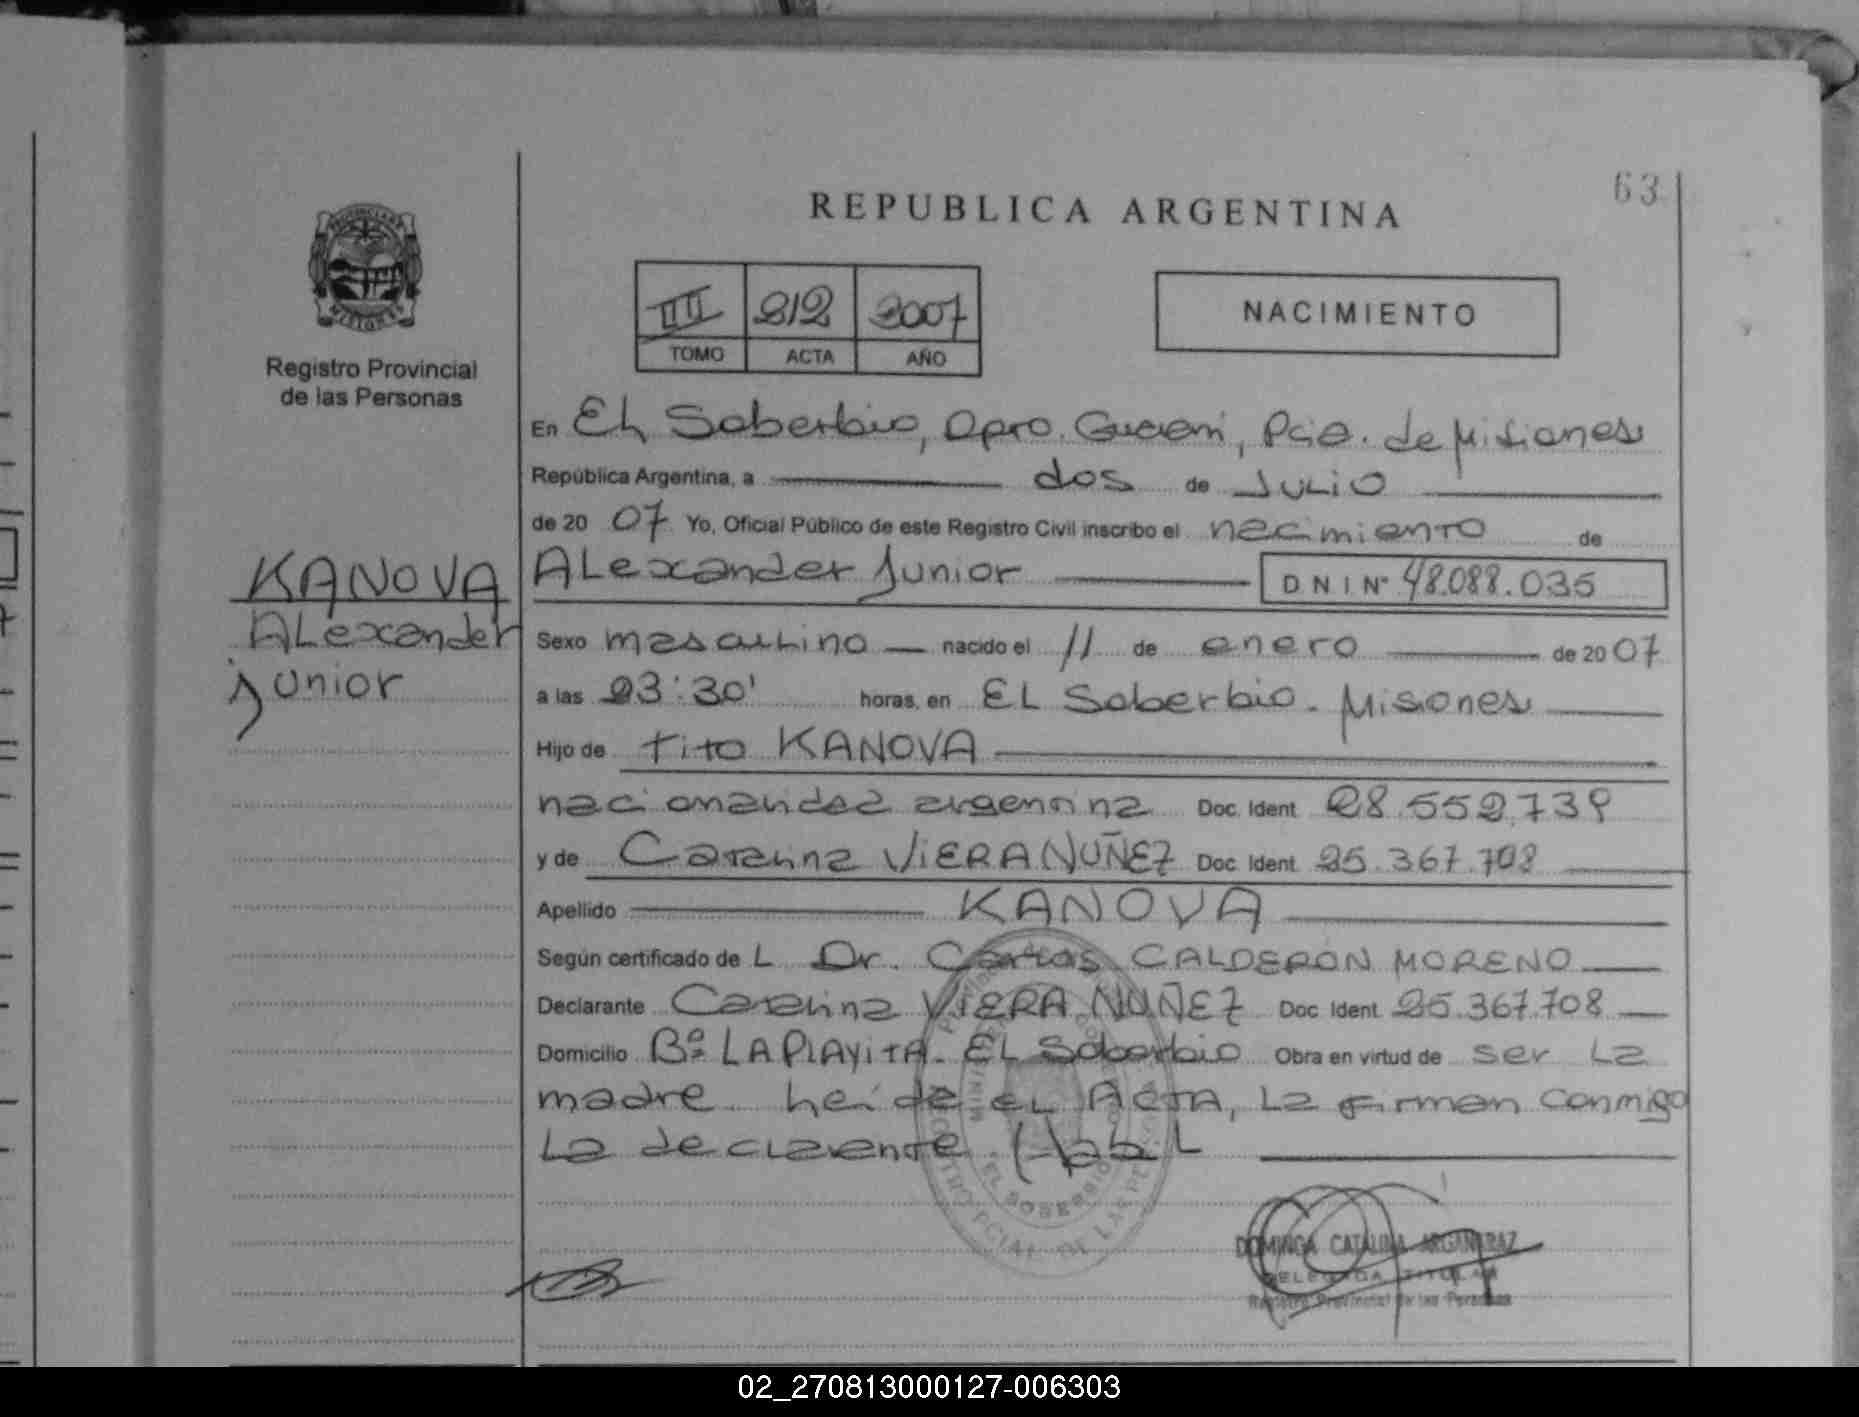 63
REPUBLICA ARGENTINA
III 212 2007
TOMO ACTA AÑO
NACIMIENTO
PROVINCIA DE MISIONES
Registro Provincial
de las Personas
KANOVA
ALexander
Junior
En EL Soberbio, Dpto. Guarani, Pcia. de Misiones
República Argentina, a dos de JULIO
de 2007 Yo, Oficial Público de este Registro Civil inscribo el nacimiento de
ALexander Junior D N I Nº 48.088.035
Sexo mascuLino nacido el 11 de enero de 2007
a las 23:30' horas, en EL Soberbio. Misiones
Hijo de tito KANOVA
nacionalidad argentina Doc. Ident. 28.552.739
y de Catalina ViERA NUÑEZ Doc. Ident. 25.367.708
Apellido KANOVA
Según certificado de L Dr. Carlos CALDERÓN MORENO
Declarante Catalina ViERA NUÑEZ Doc. Ident. 25.367.708
Domicilio Bº LA PlAyitA. EL Soberbio Obra en virtud de ser La
madre. Leída EL ActA, La Firman conmigo
La decLarante.
EL SOBERBIO
DOMINGA CATALINA ARGAÑARAZ
DELEGADA TITULAR
Registro Provincial de las Personas
02_270813000127-006303